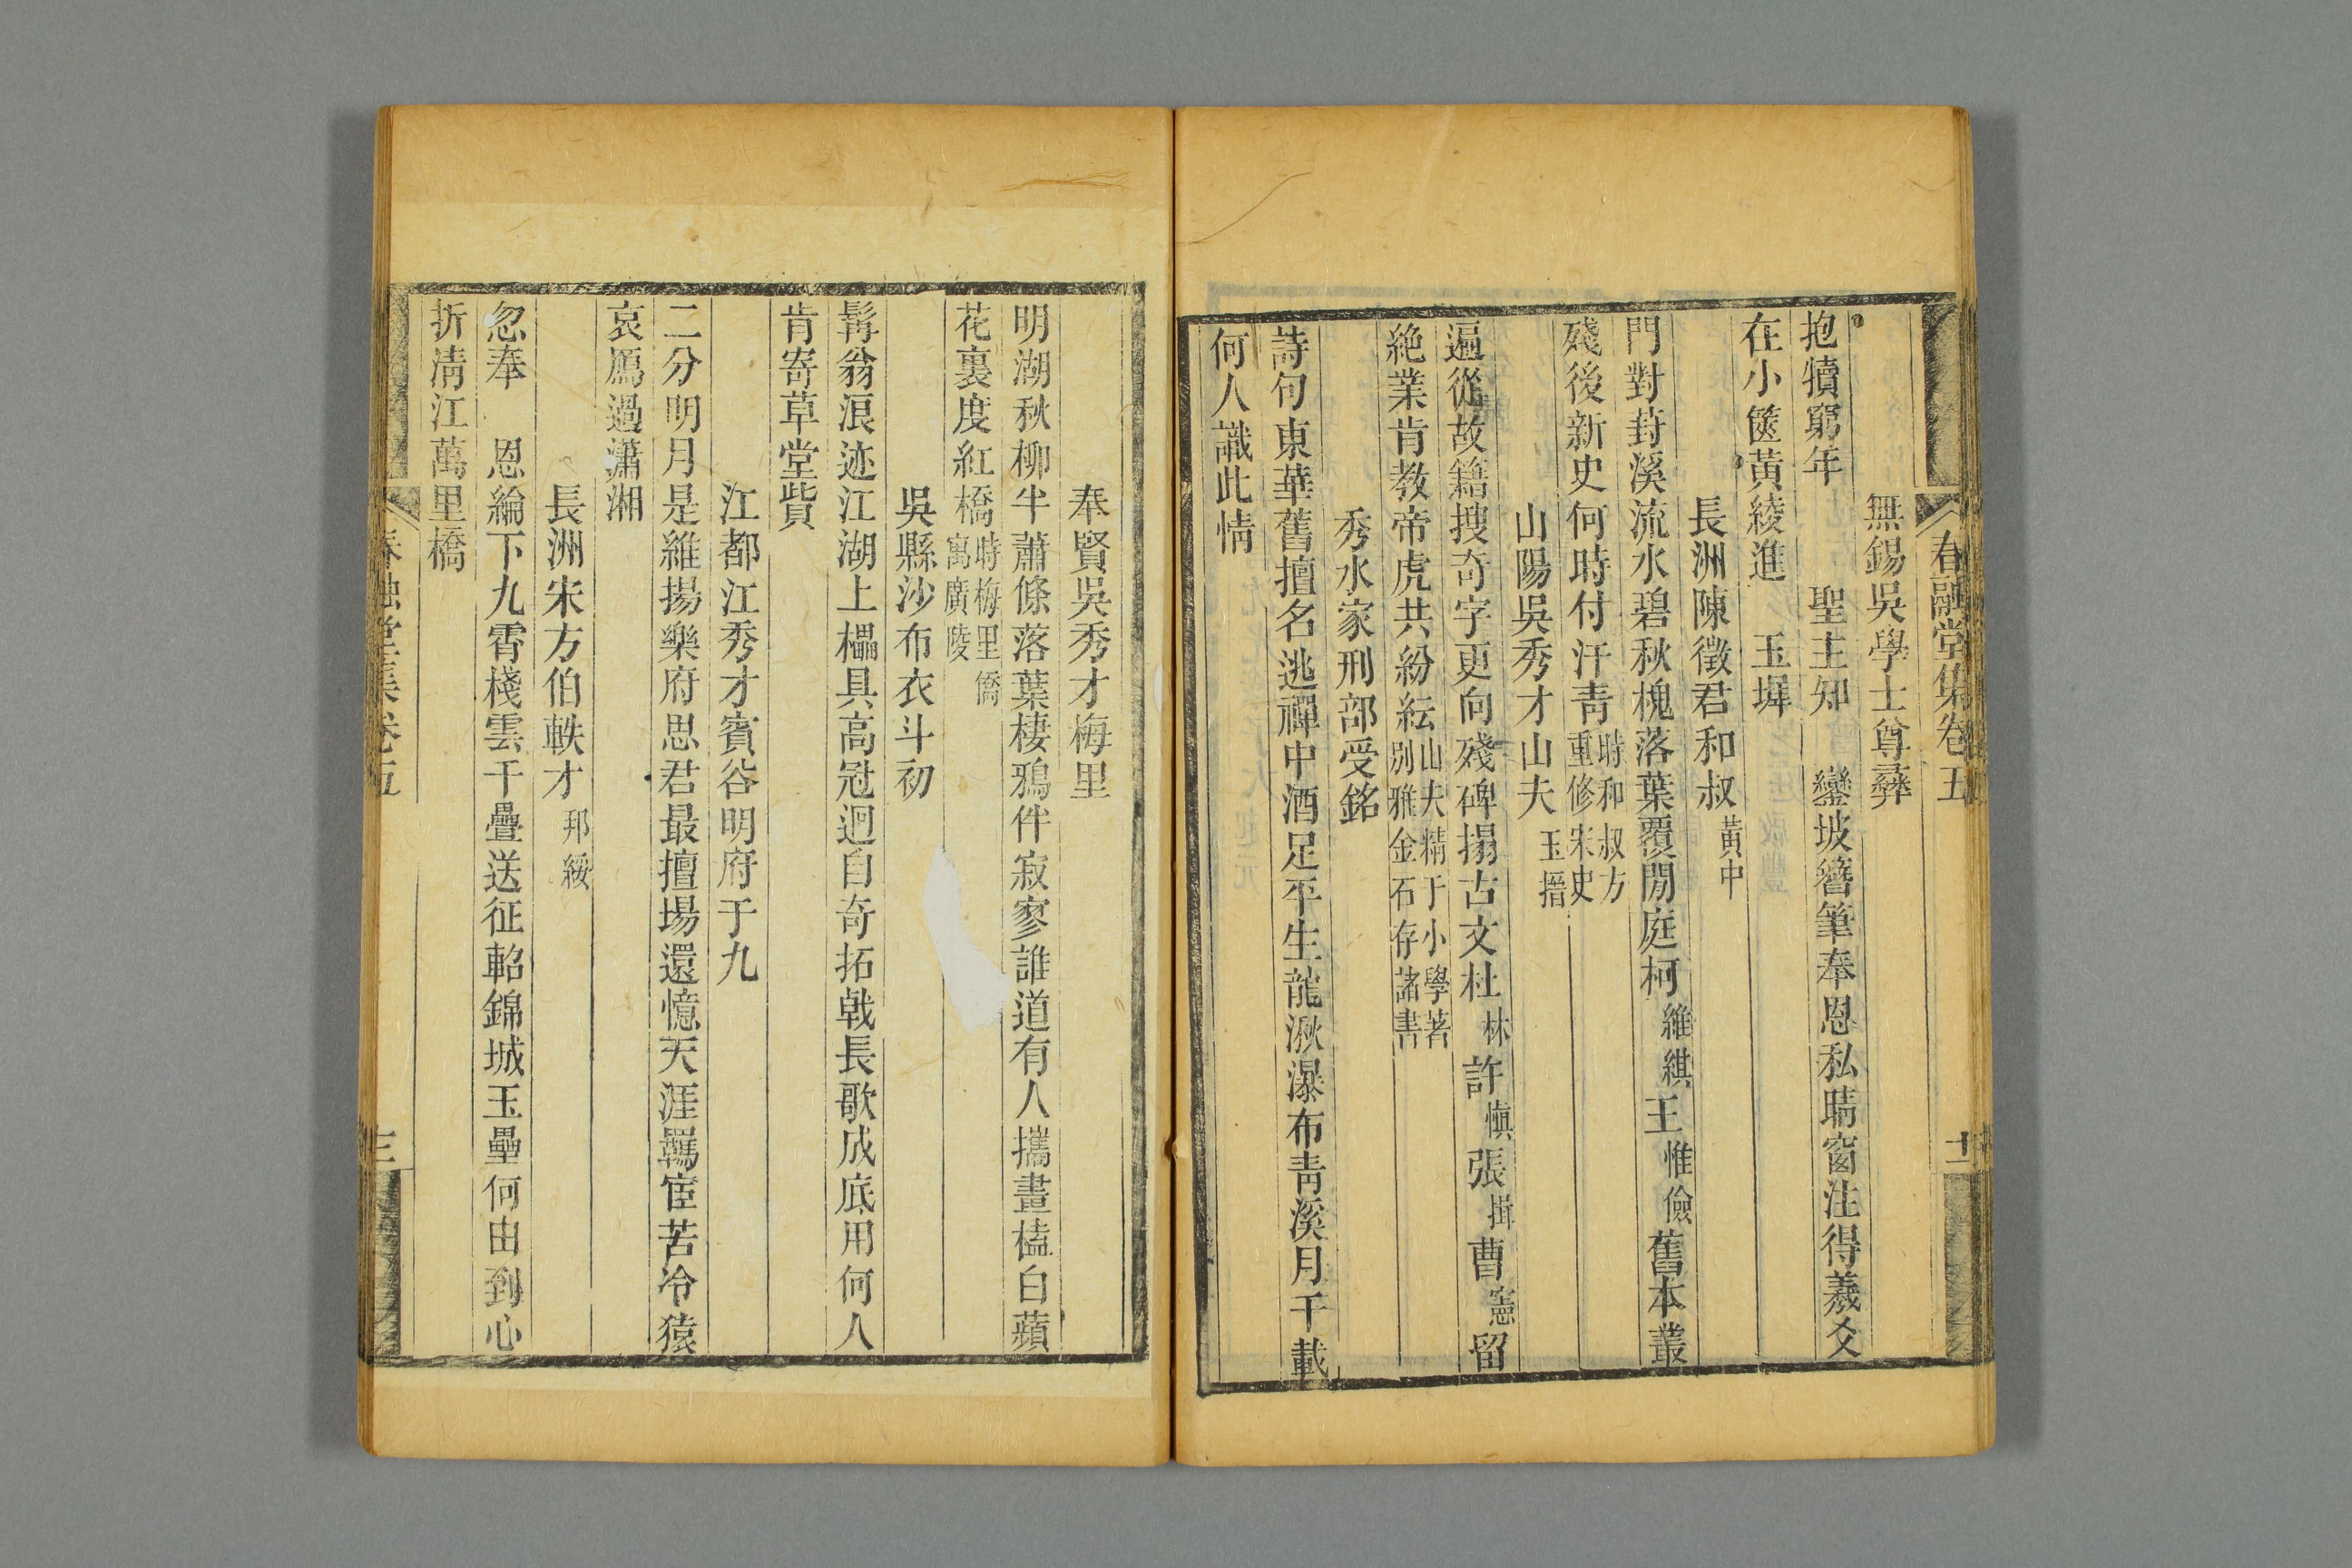 春融堂集卷五
無錫吳學士尊彝
抱犢窮年　聖主知　鑾坡簪筆奉恩私晴窗注得羲爻
在小篋黃綾進　玉墀
長洲陳徵君和叔黃中
門對葑溪流水碧秋槐落葉覆閒庭柯維綨王惟儉舊本叢
殘後新史何時付汗青時和叔方重修宋史
山陽吳秀才山夫玉搢
遍從故籍搜奇字更向殘碑搨古文杜林許愼張揖曹憲留
絶業肯教帝虎共紛紜山夫精于小學著別雅金石存諸書
秀水家刑部受銘
詩句東華舊擅名逃禪中酒足平生龍湫瀑布青溪月千載
何人識此情
奉賢吳秀才梅里
明湖秋柳半蕭條落葉棲鴉伴寂寥誰道有人攜畫榼白蘋
花裏度紅橋時梅里僑寓廣陵
吳縣沙布衣斗初
髯翁浪迹江湖上櫑具高冠迥自奇拓戟長歌成底用何人
肯寄草堂貲
江都江秀才賓谷明府于九
二分明月是維揚樂府思君最擅場還憶天涯羈宦苦冷猿
哀鴈過瀟湘
長洲宋方伯軼才邦綏
忽奉　恩綸下九霄棧雲千疊送征軺錦城玉壘何由到心
折淸江萬里橋
春融堂集卷五
三